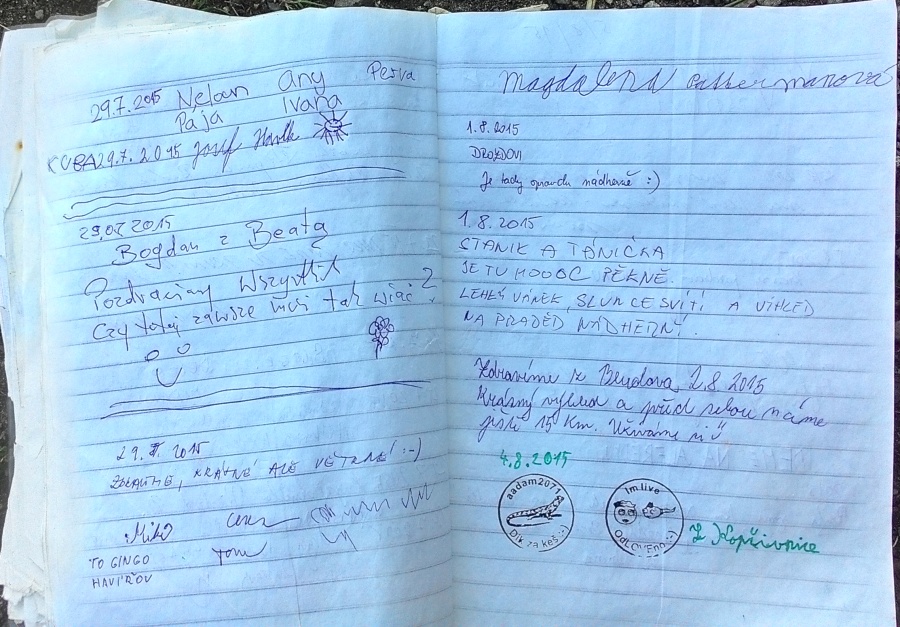 29.7.2015 Nelan Any Peťva
Pája Ivana
KUBA 29.7.2015 Josef
29.07.2015
Bogdan z Beatą
Pozdrawiamy Wszystkich
Czy tutaj zawsze musi tak wiać?
29.7.2015
ZDRAVÍME, KRÁSNÉ ALE VĚTRNÉ! :-)
Miko
TO GINGO Tom
HAVÍŘOV
Magdalena
1.8.2015
DROZDOVI
Je tady opravdu nádherně :)
1.8.2015
STANIK A TÁNIČKA
JE TU MOOOC PĚKNĚ.
LEHKÝ VÁNEK, SLUNCE SVÍTÍ A VÍHLED
NA PRADĚD NÁDHERNÝ.
Zdravíme z Bludova, 2.8 2015
Krásný výhled a před sebou máme
ještě 15 Km. Užíváme si
4.8.2015
aadam2071
Dík za keš :-)
1m.live
OdLOVEno :-)
Z Kopřivnice